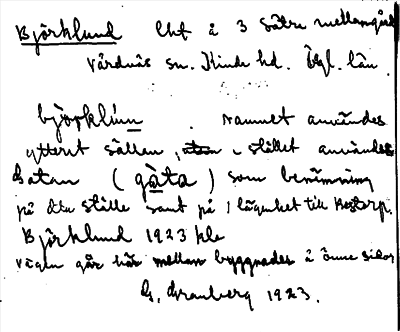 Björklund Lht å 3 Sätra mellangård
Vårdnäs sn. Kinda hd. Ögl. län
björklùnn. Namnet användes
ytterst sällan, i stället användes
Gatan (gàta) som benämning
på dta ställe samt på 1 lägenhet till
Björklund 1923
vägen går här mellan byggnader å ömse sidor
G. Granberg 1923.